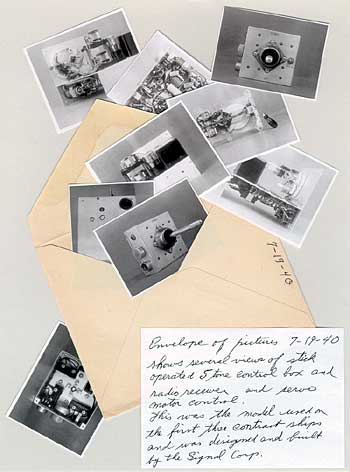 7-19-40
Envelope of pictures 7-19-40
shows several views of stick
operated 5 tone control box and
radio receiver and servo
motor control.
This was the model used on
the first three contract ships
and was designed and built
by the Signal Corp.